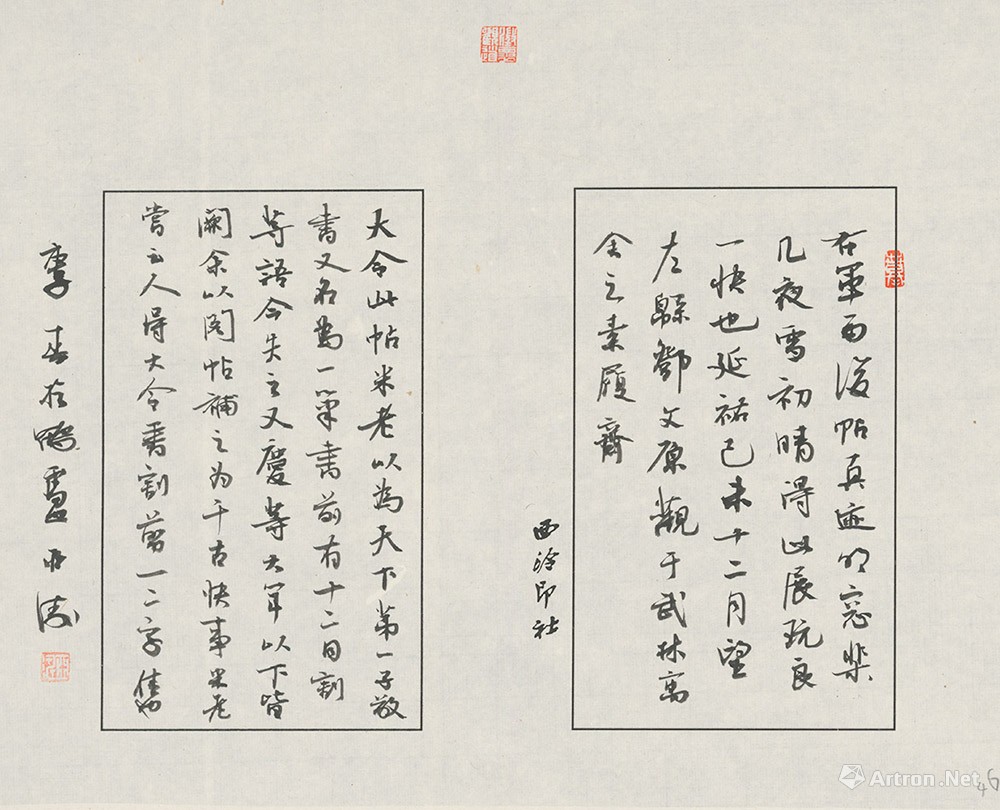 右軍雨後帖真迹明窓棐
几夜雪初晴得此展玩良
一快也延祐己未十二月望
左緜鄧文原觀于武林寓
舍之素履齋
西泠印社
大令此帖米老以為天下第一子敬
書又名為一筆書前有十二日割
等語今失之又慶等大軍以下皆
闕余以閣帖補之为千古快事米老
嘗云人得大令書割剪一二字售
李
Artron.Net
46